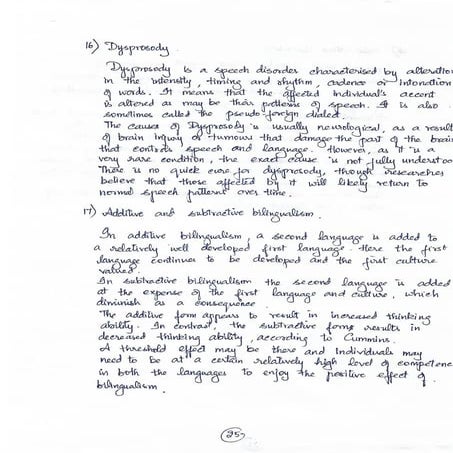 16) Dysprosody.
Dysprosody is a speech disorder characterised by alteration
in the intensity, timing and rhythm, cadence or intonation
of words. It means that the affected individual's accent
is altered as may be their patterns of speech. It is also
sometimes called the pseudo-foreign dialect.
The causes of Dysprosody is usually neurological, as a result
of brain injury or tumours that damage the part of the brain
that controls speech and language. However, as it is a
very rare condition, the exact cause is not fully understoo
There is no quick cure for dysprosody, though researchers
believe that those affected by it will likely return to
normal speech patterns over time.
17) Additive and subtractive bilingualism.
In additive bilingualism, a second language is added to
a relatively well developed first language. Here the first
language continues to be developed and the first culture
valued.
In subtractive bilingualism the second language is added
at the expense of the first language and culture, which
diminish as a consequence.
The additive form appears to result in increased thinking
ability. In contrast, the subtractive form results in
decreased thinking ability, according to Cummins.
A threshold effect may be there and individuals may
need to be at a certain relatively high level of competence
in both the languages to enjoy the positive effect of
bilingualism.
25